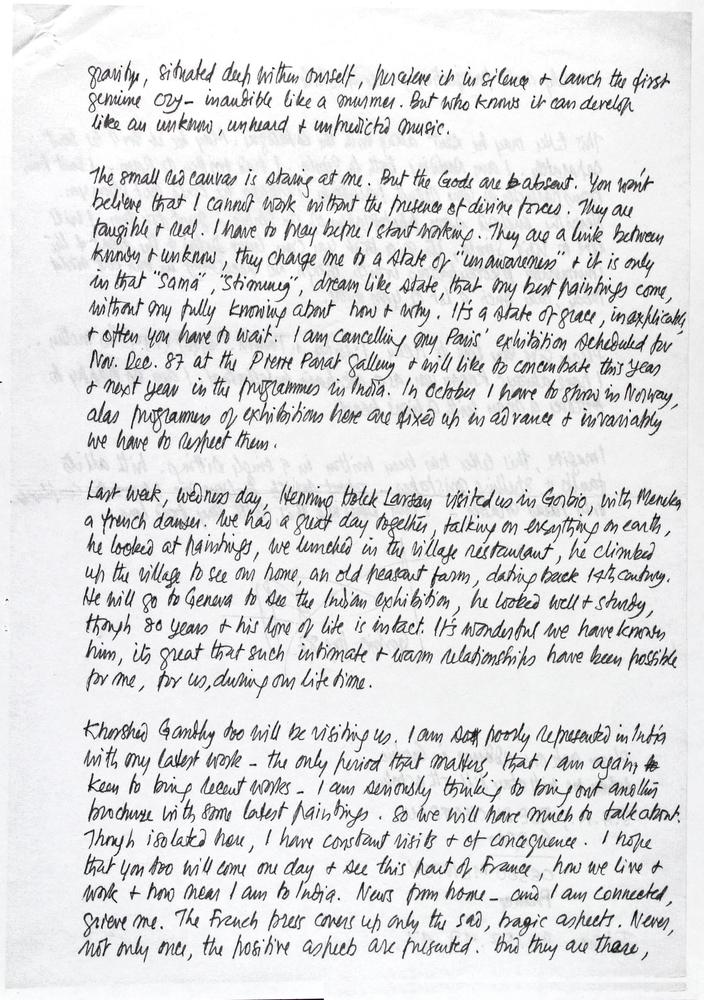 gravitye, situated deep within ourself, perceieve it in silence + lanch the first
genuine cry - inaudible like a murmer. But who knows it can develop
like an unknow, unheard + unpredicted music.
The small red canvas is staring at me. But the Gods are absent. You won't
believe that I cannot work without the presence of divine forces. They are
tangible + real. I have to pray before I start working. They are a link between
known + unknow, they charge me to a state of "unawareness" + it is only
in that "Sama", "Stimung", dream like state, that my best paintings come,
without my fully knowing about how + why. It's a state of grace, inexplicable,
+ often you have to wait. I am cancelling my Paris' exhibition scheduled for
Nov. Dec. 87 at the Pierre Parat gallery + will like to concentrate this year
+ next year in the programmes in India. In October I have to show in Norway,
alas programmes of exhibitions here are fixed up in advance + invariably
we have to respect them.
Last week, wednesday, Henning Holck Larsen visited us in Gorbio, with Menaka
a french danser. We had a great day together, talking on everything on earth,
he looked at paintings, we lunched in the village restaurant, he climbed
up the village to see our home, an old peasant farm, dating back 14th century.
He will go to Geneva to see the Indian exhibition, he looked well + sturdy,
though 80 years + his love of life is intact. It's wonderful we have known
him, its great that such intimate + warm relationships have been possible
for me, for us, during our life time.
Khorshed Gandhy too will be visiting us. I am so poorly represented in India
with my latest work - the only period that matters, that I am again
keen to bring recent works - I am seriously thinking to bring out another
brochure with some latest paintings. So we will have much to talk about.
Though isolated here, I have constant visits + of concequence. I hope
that you too will come one day + see this part of France, how we live +
work + how near I am to India. News from home - and I am connected,
grieve me. The French press covers up only the sad, tragic aspects. Never,
not only once, the positive aspects are presented. And they are there,